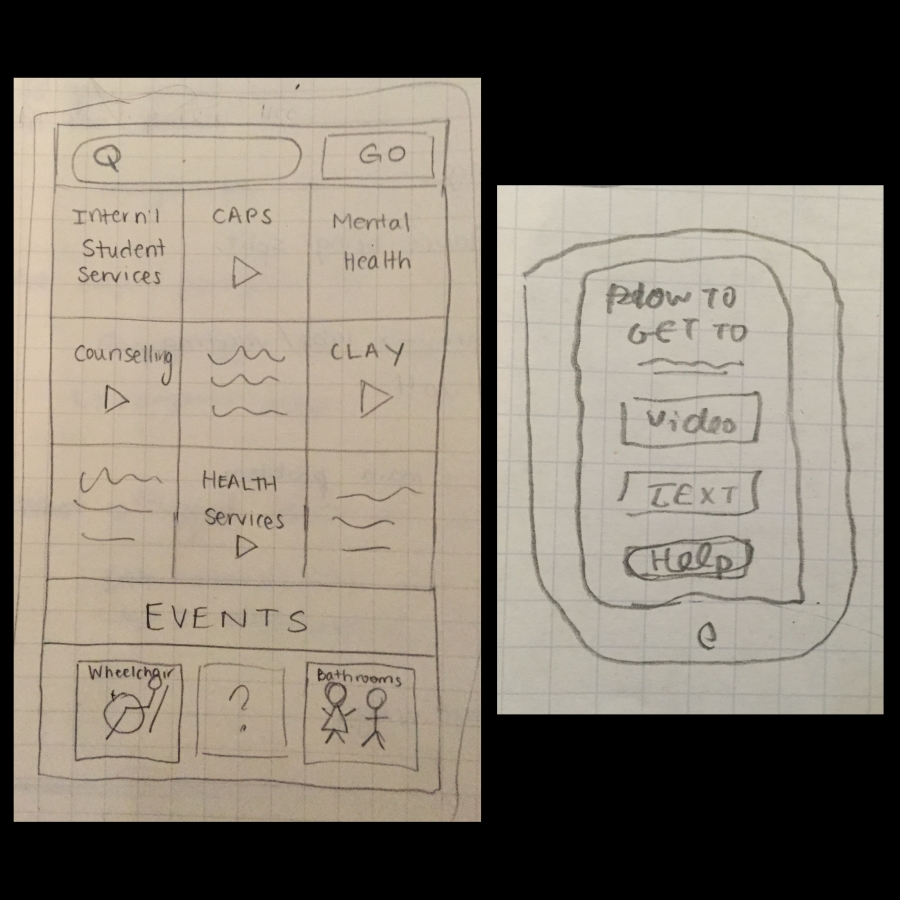 GO
Intern'l
Student
Services
CAPS
Mental
Health
Counselling
CLAY
HEALTH
Services
EVENTS
Wheelchair
?
Bathrooms
HOW TO
GET TO
Video
TEXT
Help